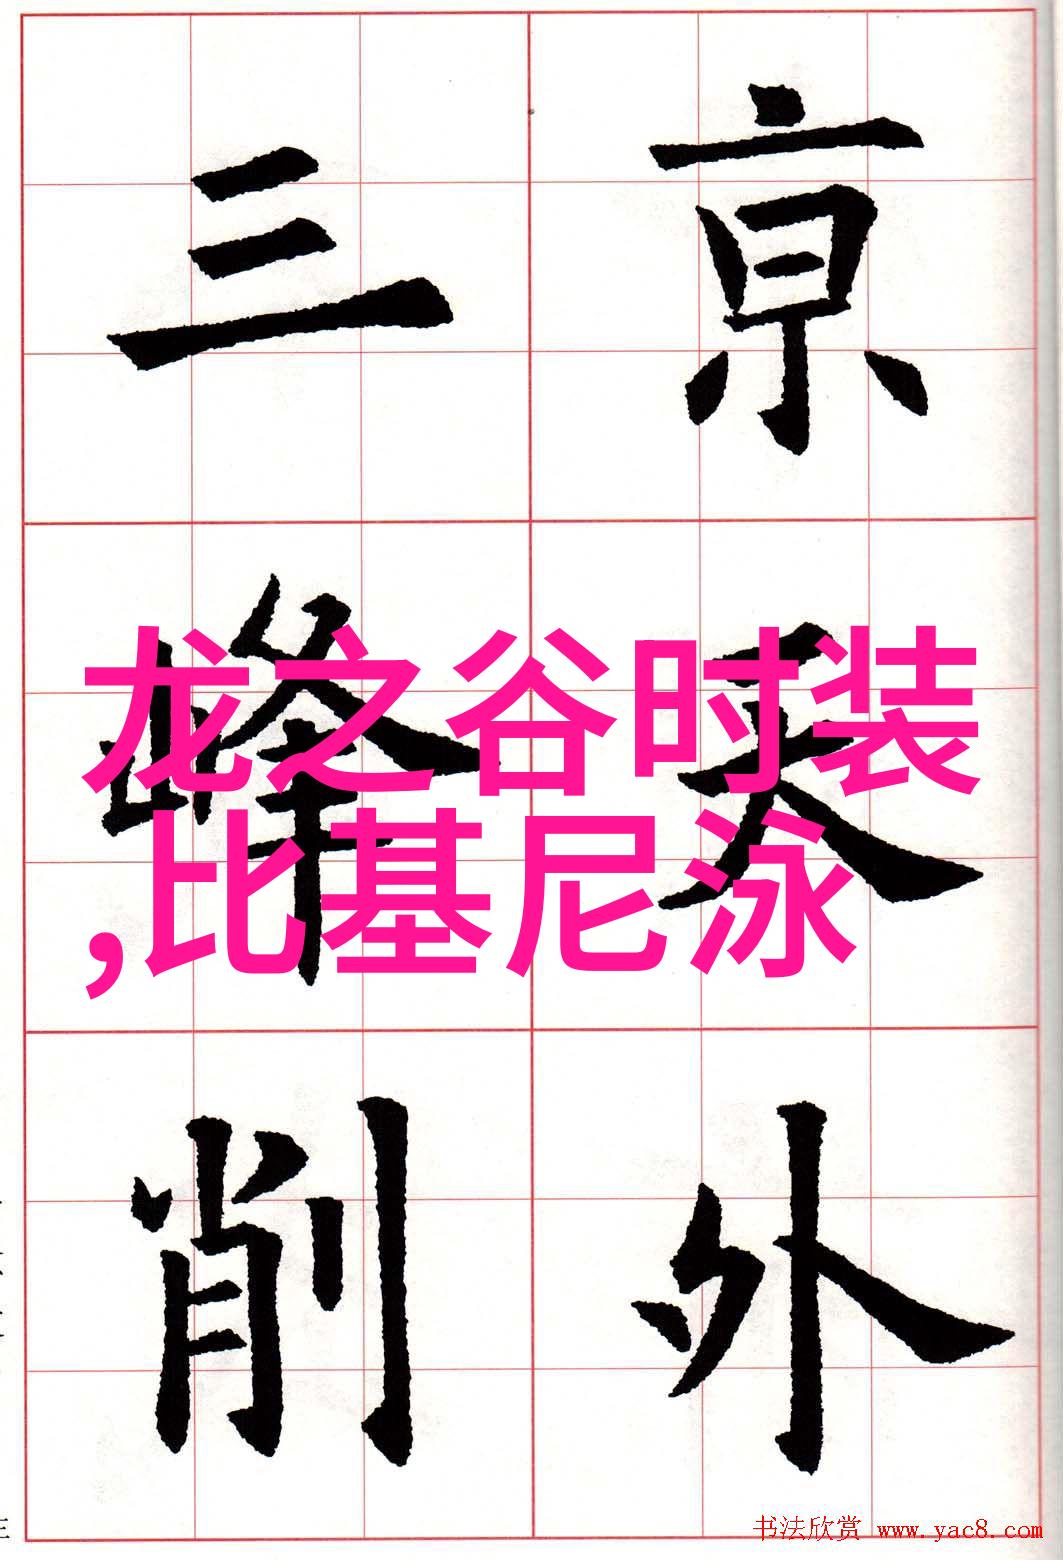 亰天外
三峰削
龙之谷时装
,比基尼泳
书法欣赏 www.yac8.com